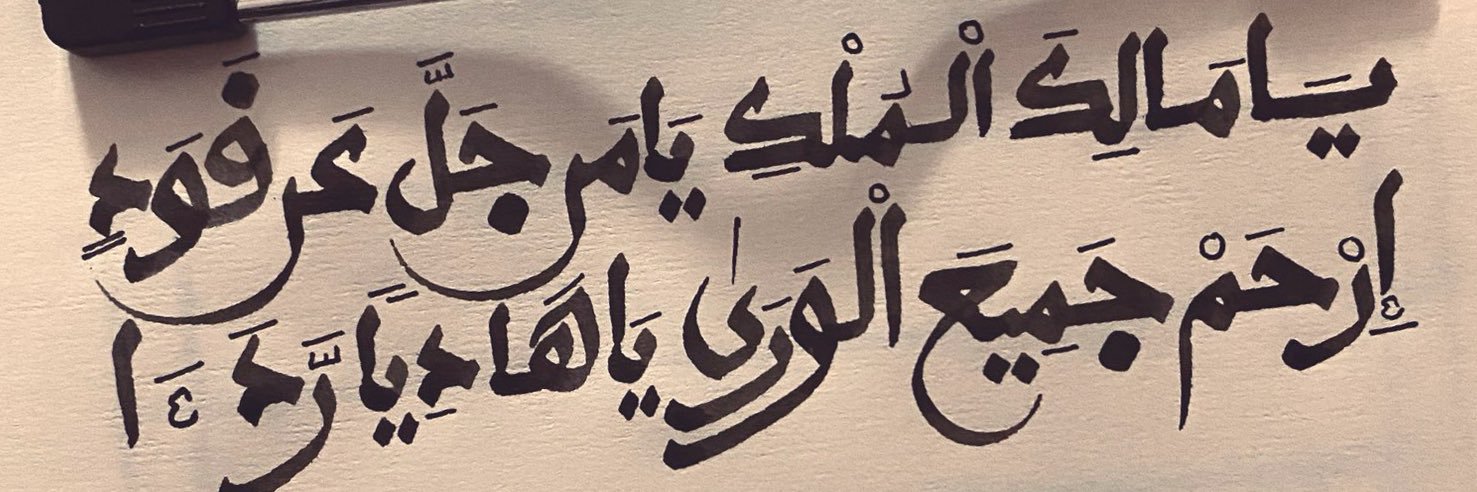 يَا مَالِكَ الْمُلْكِ يَا مَن جَلَّ عَن قَوَدٍ
إِرْحَمْ جَمِيعَ الْوَرَىٰ يَا هَادِيًا رَّدَءَا